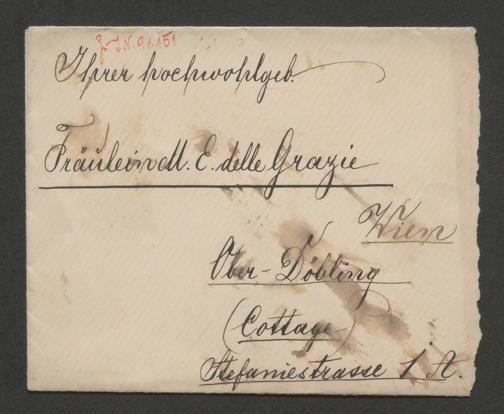 Zu I.N. 91.151
Ihrer hochwohlgeb.
Fräulein M. E. delle Grazie
Wien
Ober-Döbling
(Cottage)
Stefaniestrasse 1 A.